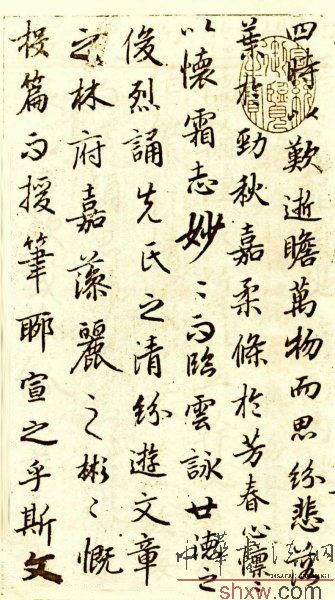 四時以歎逝瞻萬物而思紛悲落
葉於勁秋嘉柔條於芳春心懍〻
以懷霜志妙〻而臨雲詠世德之
俊烈誦先民之清紛遊文章
之林府嘉藻麗之彬〻慨
投篇而援筆聊宣之乎斯文
中華書法網
shxw.com